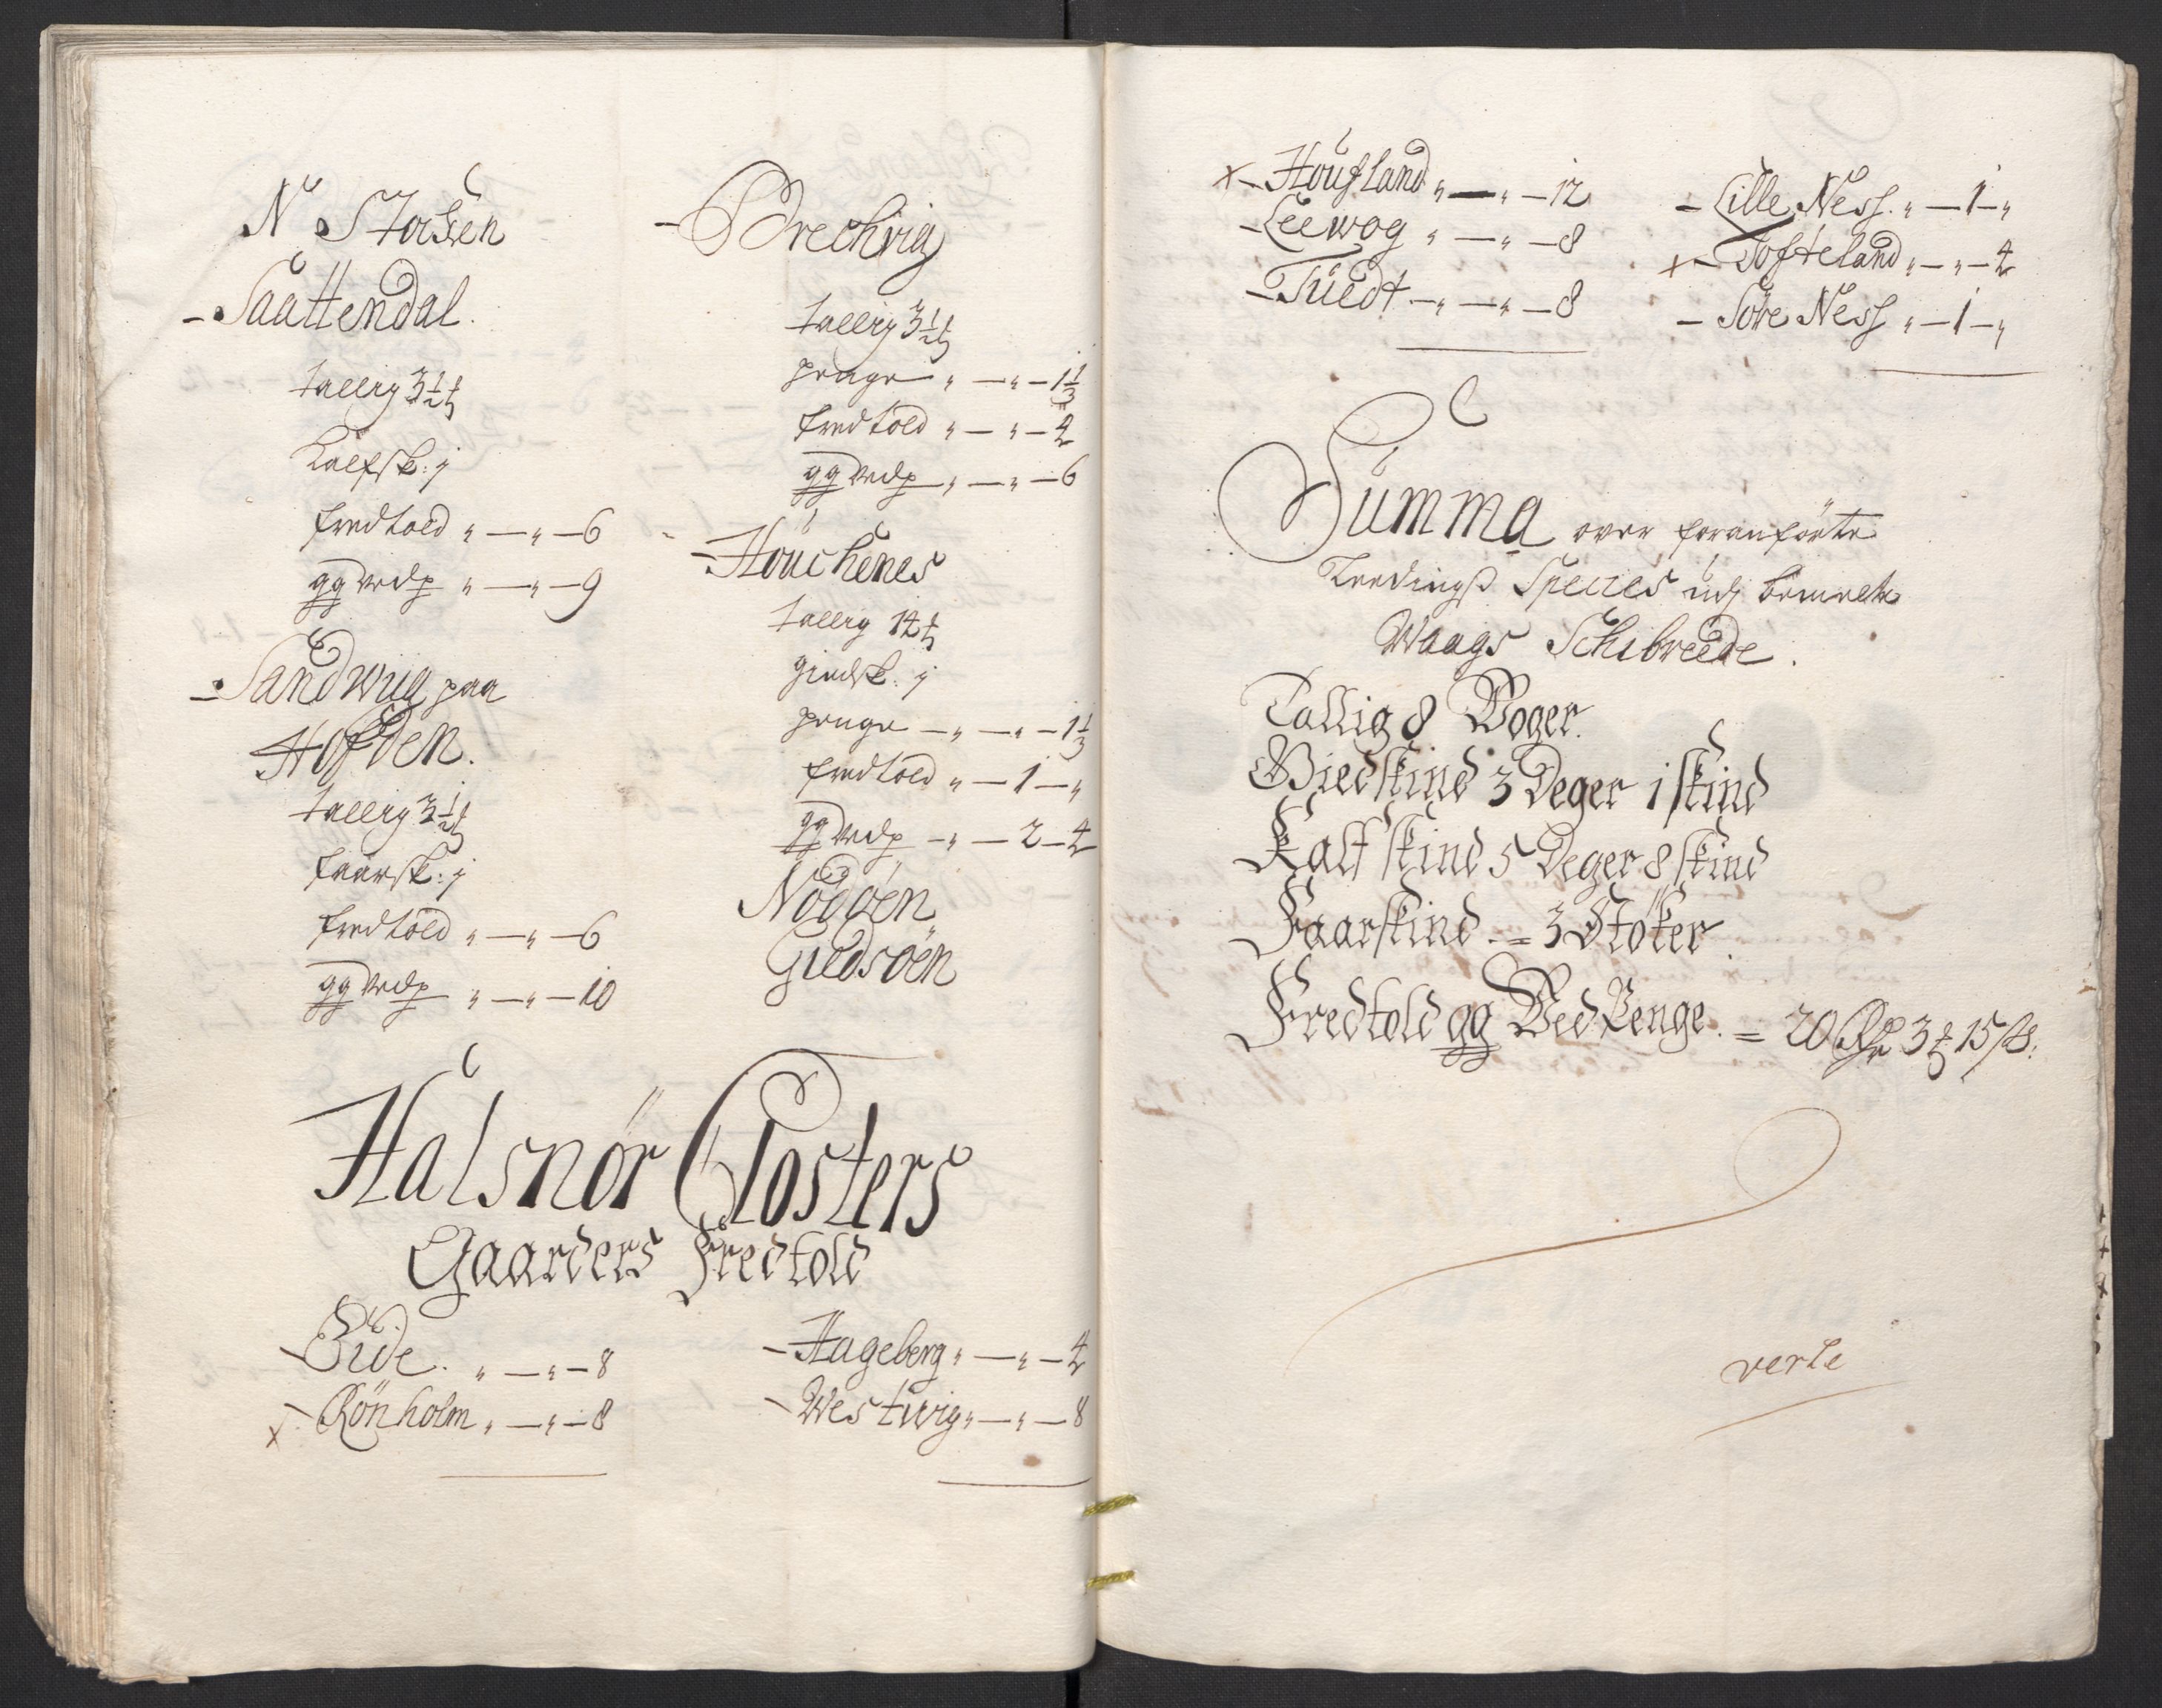 N Storsen
- Saattendal.
tallig 3 1/2 t
Kalfsk: j
fredtold " — " — 6
gg vedp " — " — 9
- Sandwiig paa
Hofden.
tallig 3 1/2 t
faarsk: j
fredtold " — " — 6
gg vedp " — " — 10
- Brechvig
tallig 3 1/2 t
penge " — " — 1 1/3
fredtold " — " — 4
gg vedp " — " — 6
- Houchenes
tallig 14 t
giedsk: j
penge — " — " — 1 1/3
fredtold " — 1 — "
gg vedp — " — 2 — 4
Nödöen
Giedsöen
Halsnör Closters
Gaarders Fredtold
- Eide. " — " — 8
x - Rönholm " — " — 8
- Hageberg " — " — 4
- Westwig " — " — 8
x - Houfland " — " — 12
- Leewog " — " — 8
- Tuedt — " — " — 8
- Lille Ness. " — 1 — "
x - Tofteland " — " — 4
- Sore Ness " — 1 — "
Summa over foranförte
Leedings Species udj bemelte
Waags Schibreede.
Tallig 8 Woger.
Giedskind 3 Deger 1 skind
Kalfskind 5 Deger 8 skind
Faarskind = 3 Stöker.
Fredtold gg Ved Penge. = 20 Rdr 3 t 15 s:
verte